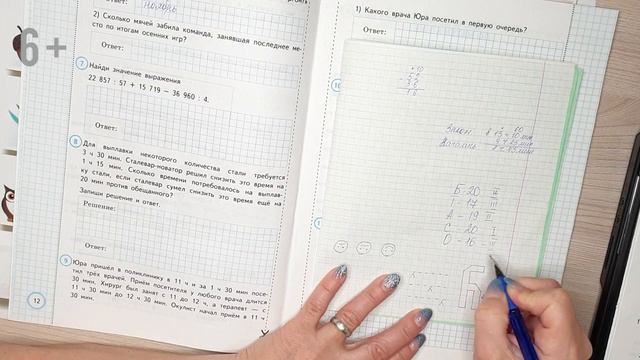 6+
Ответ: ноябрь
2) Сколько мячей забила команда, занявшая последнее ме-
сто по итогам осенних игр?
Ответ:
7 Найди значение выражения
22 857 : 57 + 15 719 − 36 960 : 4.
Ответ:
8 Для выплавки некоторого количества стали требуется
3 ч 30 мин. Сталевар-новатор решил снизить это время на
1 ч 15 мин. Сколько времени потребовалось на выплав-
ку стали, если сталевар сумел снизить это время ещё на
20 мин против обещанного?
Запиши решение и ответ.
Решение:
Ответ:
9 Юра пришёл в поликлинику в 11 ч и за 1 ч 30 мин посе-
тил трёх врачей. Приём посетителя у любого врача длится
30 мин. Хирург был занят с 11 до 12 ч, а терапевт — с
11 ч 30 мин до 12 ч 30 мин. Окулист начал приём в 11 ч
30 мин.
12
1) Какого врача Юра посетил в первую очередь?
Ответ:
10
Б - 20
Т - 17 III
А - 19 II
С - 20 I
О - 16 - III